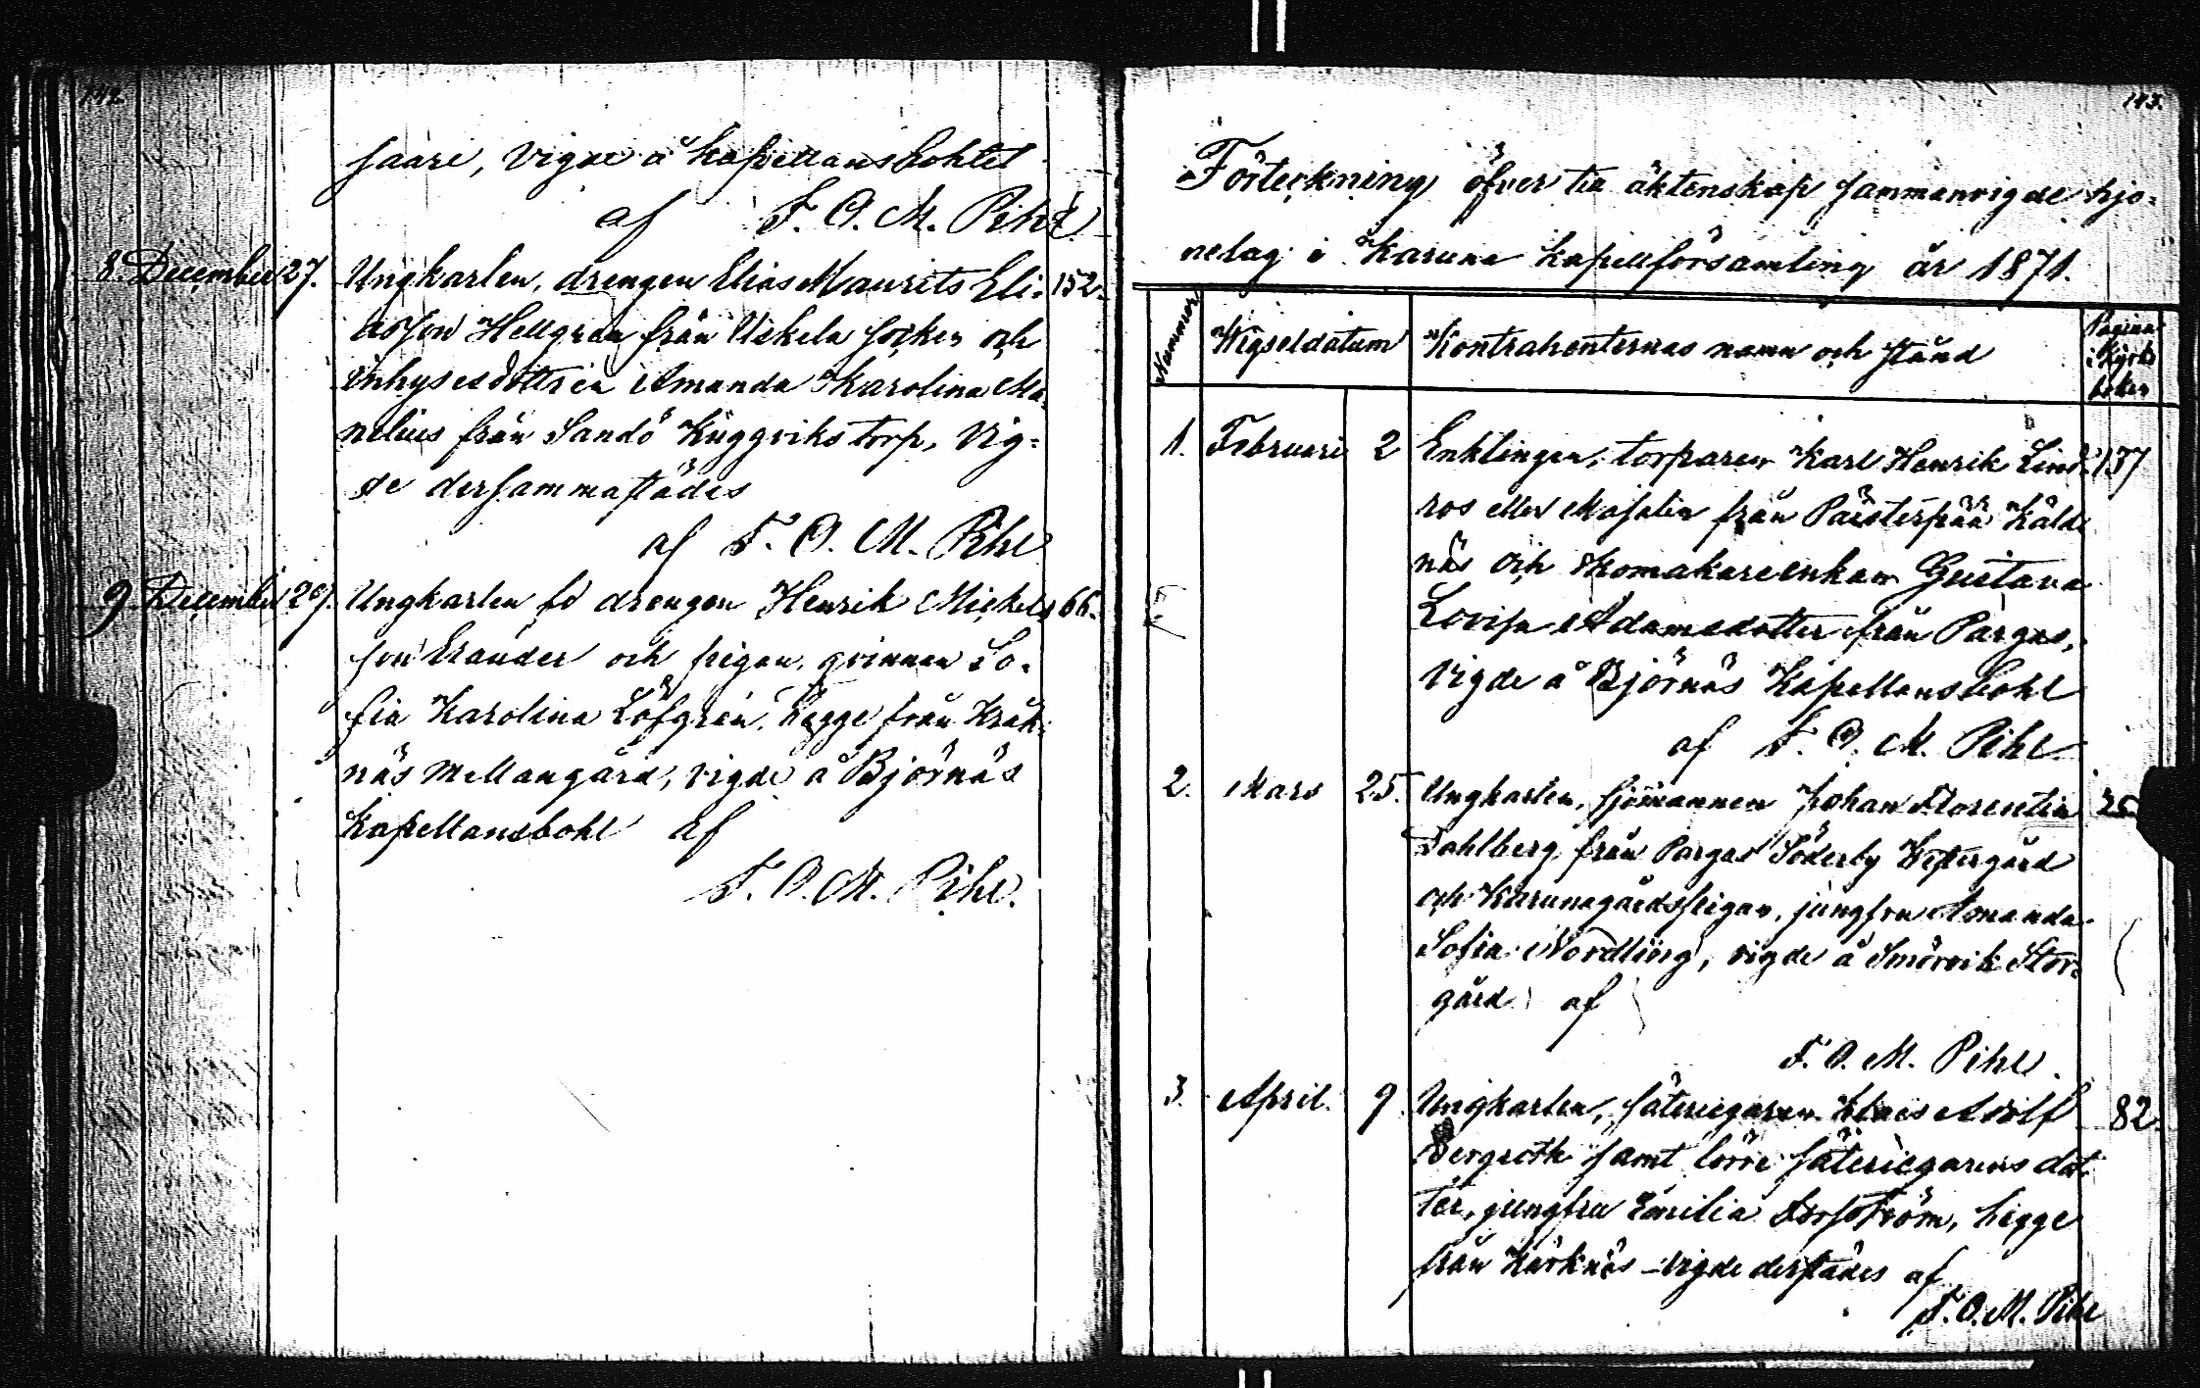 142.
saari, vigde å Kapellansbohlet
af F. O. M. Pihl
8. December 27. Ungkarlen, drengen Elias Maurits Eli- 152.
asson Hellgren från Uskela socken och
inhysesdottren Amanda Karolina Ma-
nelius från Sandö Kuggviks torp, vig-
de dersammastädes
af F. O. M. Pihl
9 December 29. Ungkarlen fd drengen Henrik Mickels- 66.
son Erander och pigan, qvinnan So-
fia Karolina Löfgrén, begge från Kräk-
näs Mellangård, vigde å Björnäs
Kapellansbohl af
F. O. M. Pihl.
143.
Förteckning öfver till äktenskap sammanvigde hjo-
nelag i Karuna kapellförsamling år 1871.
Nummer Wigseldatum Kontrahenternas namn och stånd Pagina i Kyrkoboken
1. Februari 2 Enklingen, torparen Karl Henrik Lind- 137
ros eller Majalin från Päisterpää Kåld
näs och skomakareenkan Gustava
Lovisa Adamsdotter från Pargas,
vigde å Björnäs Kapellansbohl
af F. O. M. Pihl.
2. Mars 25. Ungkarlen, sjömannen Johan Florentin 25
Dahlberg från Pargas Söderby Westergård
och Karunagårdspigan, jungfrun Amanda
Sofia Nordling, vigde å Smörvik Stor-
gård af
F. O. M. Pihl.
3. April. 9 Ungkarlen, säteriegaren Klaes Adolf 82.
Bergroth samt säteriegarens dot-
ter, jungfru Emilia, begge
från Kärknäs – vigde derstädes af
F. O. M. Pihl